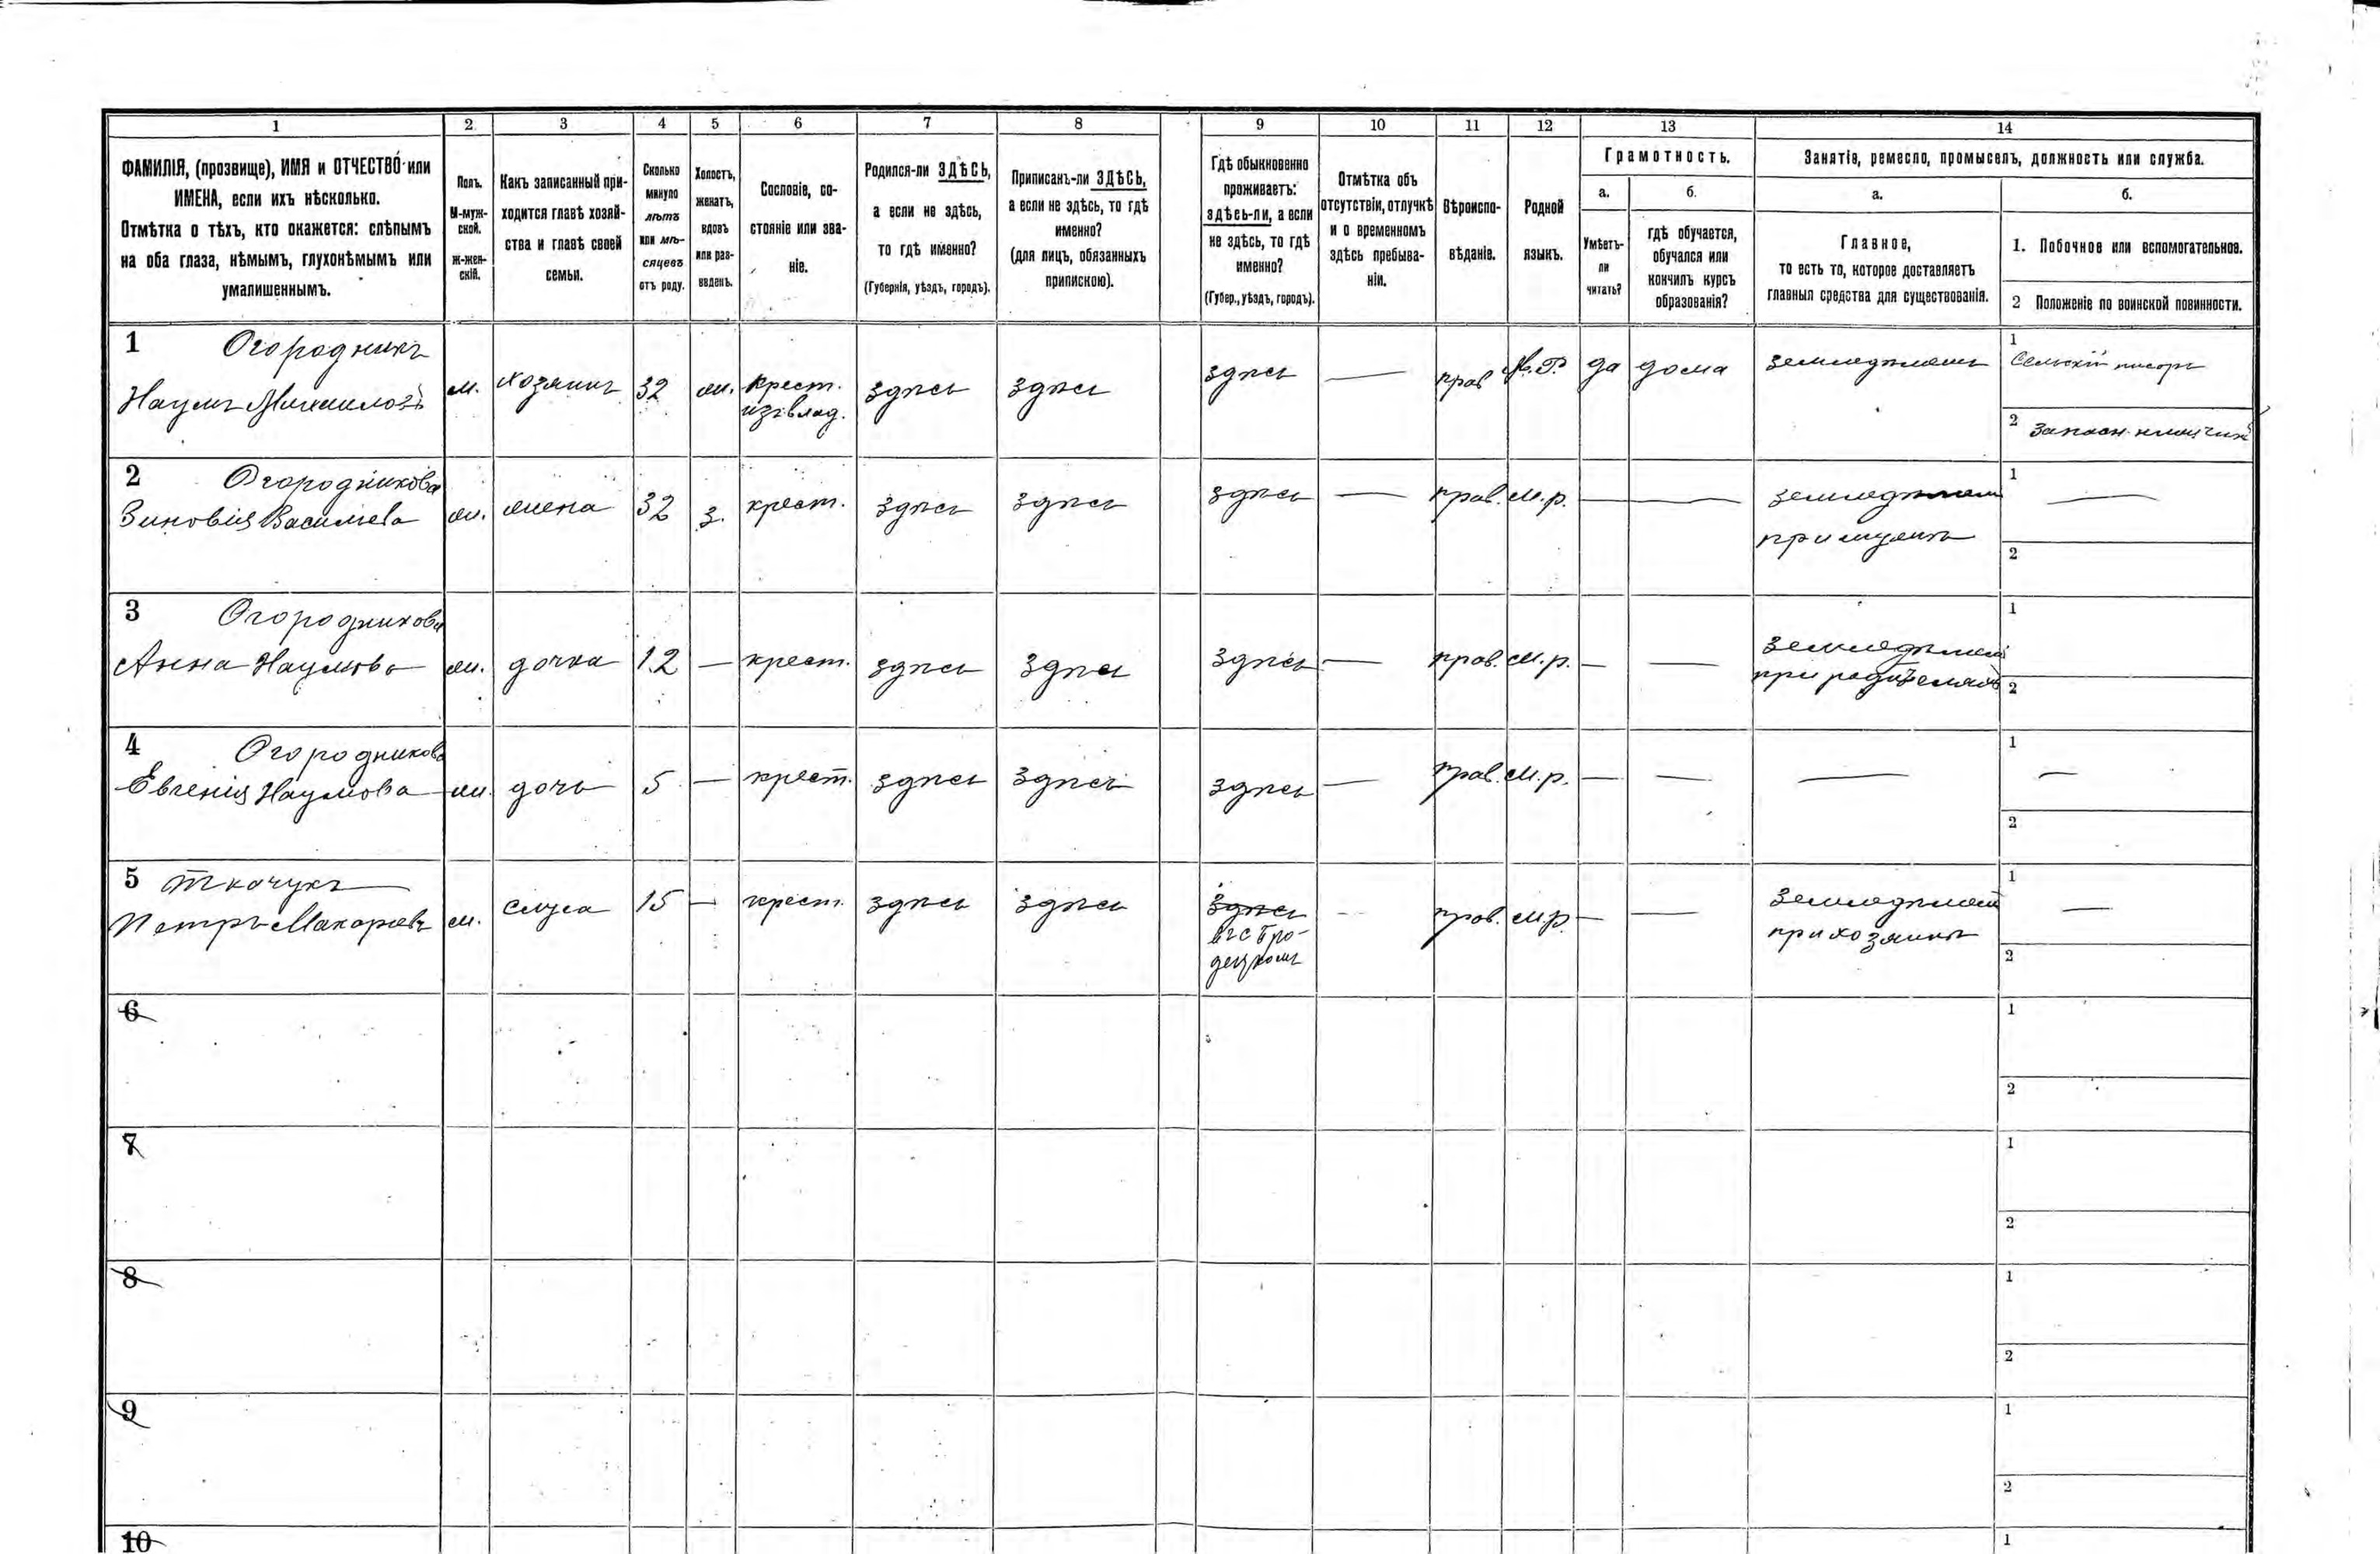 1 2 3 4 5 6 7 8 9 10 11 12 13 14
ФАМИЛІЯ, (прозвище), ИМЯ и ОТЧЕСТВО или
ИМЕНА, если ихъ нѣсколько.
Отмѣтка о тѣхъ, кто окажется: слѣпымъ
на оба глаза, нѣмымъ, глухонѣмымъ или
умалишеннымъ.
Полъ.
М-муж-
ской.
Ж-жен-
скій.
Какъ записанный при-
ходится главѣ хозяй-
ства и главѣ своей
семьи.
Сколько
минуло
лѣтъ
или мѣ-
сяцевъ
отъ роду.
Холостъ,
женатъ,
вдовъ
или раз-
веденъ.
Сословіе, со-
стояніе или зва-
ніе.
Родился-ли ЗДѢСЬ,
а если не здѣсь,
то гдѣ именно?
(Губернія, уѣздъ, городъ).
Приписанъ-ли ЗДѢСЬ,
а если не здѣсь, то гдѣ
именно?
(для лицъ, обязанныхъ
припискою).
Гдѣ обыкновенно
проживаетъ:
здѣсь-ли, а если
не здѣсь, то гдѣ
именно?
(Губер., уѣздъ, городъ).
Отмѣтка объ
отсутствіи, отлучкѣ
и о временномъ
здѣсь пребыва-
ніи.
Вѣроиспо-
вѣданіе.
Родной
языкъ.
Грамотность.
а.
Умѣетъ-
ли
читать?
б.
гдѣ обучается,
обучался или
кончилъ курсъ
образованія?
Занятіе, ремесло, промыселъ, должность или служба.
а.
Главное,
то есть то, которое доставляетъ
главныя средства для существованія.
б.
1. Побочное или вспомогательное.
2 Положеніе по воинской повинности.
1 Огородникъ
Наумъ Михаиловъ
м. хозяинъ 32 ж. крест.
из влад.
здѣсь здѣсь здѣсь — прав М.Р. да дома земледѣлецъ
1 Сельскій писарь
2
2 Огородникова
Зиновія Васильева
ж. жена 32 з. крест. здѣсь здѣсь здѣсь — прав. м.р. — — земледѣлец
при мужѣ
1 —
2
3 Огородникова
Анна Наумова
ж. дочка 12 — крест. здѣсь здѣсь здѣсь — прав. м.р. — — земледѣлец
при родителях
1
2
4 Огородникова
Евгенія Наумова
ж. дочь 5 — крест. здѣсь здѣсь здѣсь — прав. м.р. — — —
1 —
2
5 Ткачукъ
Петръ Макаровъ
м. слуга 15 — крест. здѣсь здѣсь здѣсь
— прав. м.р. — — земледѣлец
при хозяинѣ
1 —
2
6
1
2
7
1
2
8
1
2
9
1
2
10
1